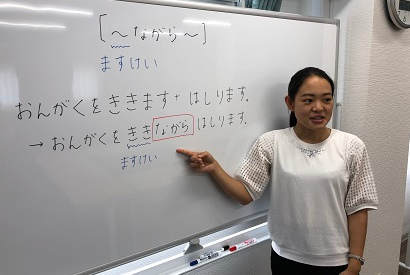 [～ながら～]
ますけい
おんがくをききます+はしります。
→おんがくをききながらはしります。
ますけい